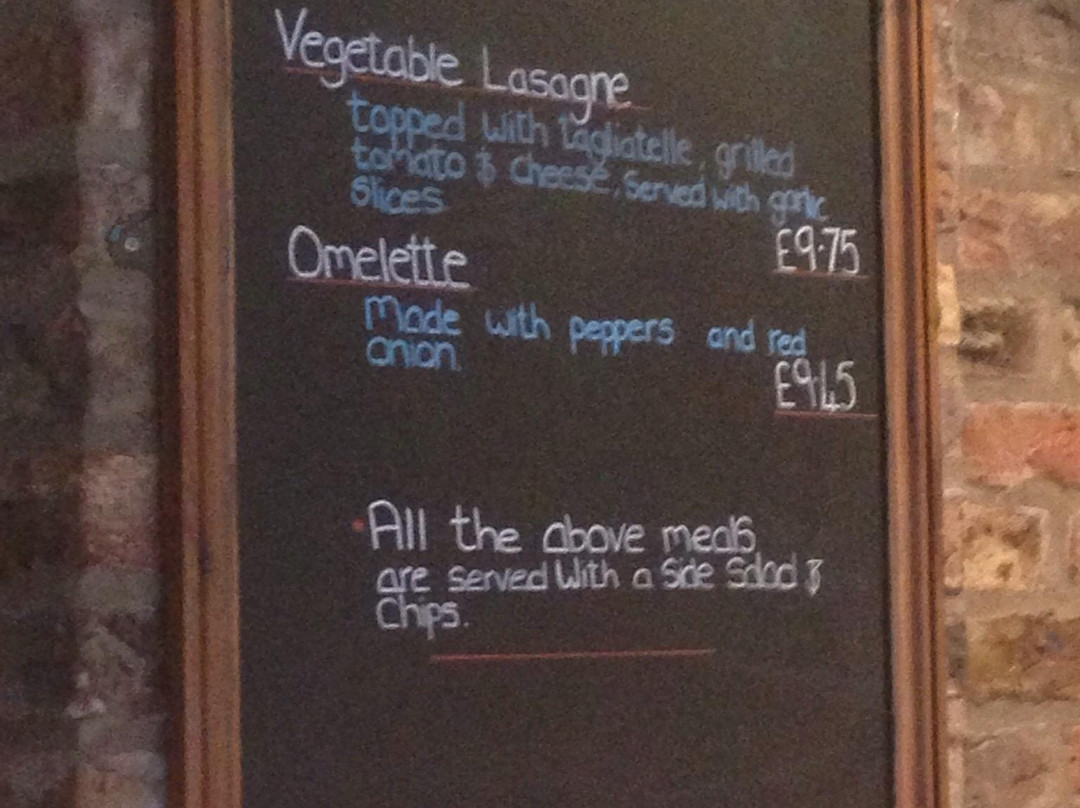 Vegetable Lasagne
topped with tagliatelle, grilled
tomato & cheese, served with garlic
slices
£9.75
Omelette
Made with peppers and red
onion.
£9.45
• All the above meals
are served with a side salad &
Chips.